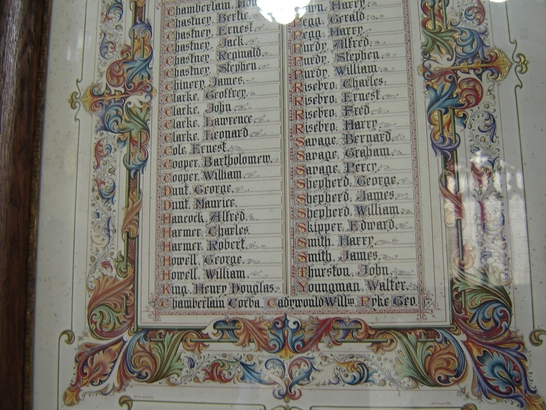 Chamberlain
Chastney, Bertie.
Chastney, Ernest.
Chastney, Jack.
Chastney, Reginald.
Chastney, Stephen.
Chinery, James.
Clarke, Geoffrey.
Clarke, John.
Clarke, Lawrence
Clarke, Leonard.
Cole, Ernest.
Cooper, Bartholomew.
Cooper, William
Dunt, George.
Dunt, Maurice.
Hancock, Alfred.
Harmer, Charles.
Harmer, Robert.
Howell, George.
Howell, William.
King, Henry Douglas.
Harry.
Pegg, Gerald
Pegg, Harry.
Purdy, Alfred.
Purdy, Stephen.
Purdy, William.
Risebro, Charles.
Risebro, Ernest.
Risebro, Fred
Risebro, Harry.
Savage, Bernard.
Savage, Graham.
Savage, Percy.
Shepherd, George.
Shepherd, James.
Shepherd, William.
Skipper, Edward.
Smith, Harry.
Smith, James.
Thurston, John.
Youngman, Walter.
Chamberlain Corba, Cadywould Willm, Pyke Geo.